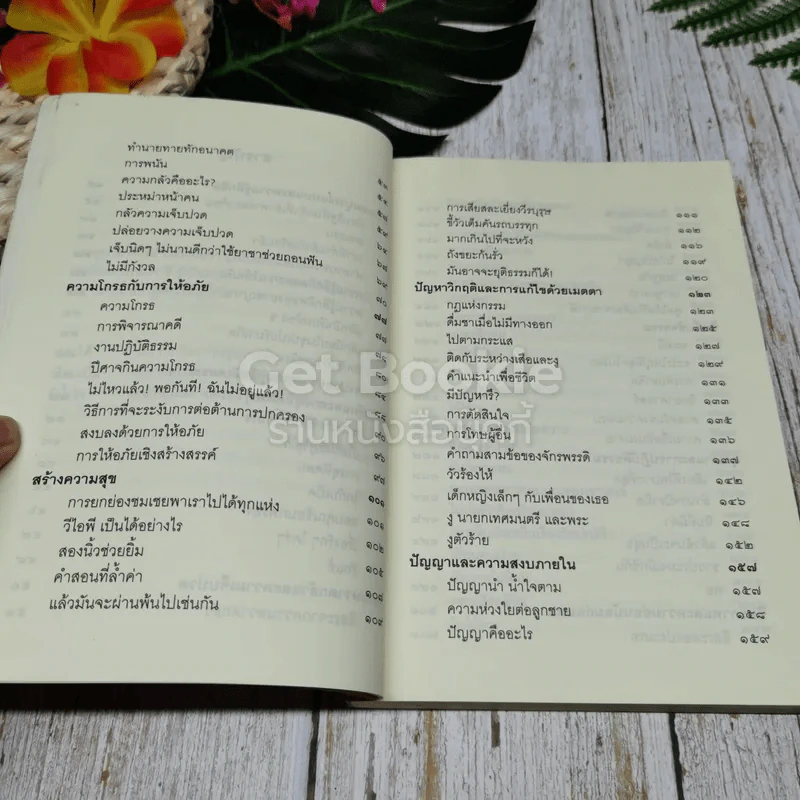 ทำนายทายทักอนาคต ๕๓
การพนัน ๕๔
ความกลัวคืออะไร? ๕๗
ประหม่าหน้าคน ๕๘
กลัวความเจ็บปวด ๖๔
ปล่อยวางความเจ็บปวด ๖๗
เจ็บนิดๆ ไม่นานดีกว่าใช้ยาชาช่วยถอนฟัน ๖๙
ไม่มีกังวล ๗๐
ความโกรธกับการให้อภัย ๗๗
ความโกรธ ๗๗
การพิจารณาคดี ๗๘
งานปฏิบัติธรรม ๘๑
ปีศาจกินความโกรธ ๘๔
ไม่ไหวแล้ว! พอกันที! ฉันไม่อยู่แล้ว! ๘๘
วิธีการที่จะระงับการต่อต้านการปกครอง ๙๐
สงบลงด้วยการให้อภัย ๙๖
การให้อภัยเชิงสร้างสรรค์ ๙๗
สร้างความสุข ๑๐๑
การยกย่องชมเชยพาเราไปได้ทุกแห่ง ๑๐๑
วีไอพี เป็นได้อย่างไร ๑๐๒
สองนิ้วช่วยยิ้ม ๑๐๕
คำสอนที่ล้ำค่า ๑๐๘
แล้วมันจะผ่านพ้นไปเช่นกัน ๑๐๙
การเสียสละเยี่ยงวีรบุรุษ ๑๑๑
ขี้วัวเต็มคันรถบรรทุก ๑๑๒
มากเกินไปที่จะหวัง ๑๑๖
ถังขยะก้นรั่ว ๑๑๙
มันอาจจะยุติธรรมก็ได้! ๑๒๐
ปัญหาวิกฤติและการแก้ไขด้วยเมตตา ๑๒๓
กฎแห่งกรรม ๑๒๓
ดื่มชาเมื่อไม่มีทางออก ๑๒๕
ไปตามกระแส ๑๒๗
ติดกับระหว่างเสือและงู ๑๒๙
คำแนะนำเพื่อชีวิต ๑๓๑
มีปัญหารึ? ๑๓๓
การตัดสินใจ ๑๓๕
การโทษผู้อื่น ๑๓๖
คำถามสามข้อของจักรพรรดิ ๑๓๗
วัวร้องไห้ ๑๔๒
เด็กหญิงเล็กๆ กับเพื่อนของเธอ ๑๔๖
งู นายกเทศมนตรี และพระ ๑๔๘
งูตัวร้าย ๑๕๒
ปัญญาและความสงบภายใน ๑๕๗
ปัญญานำ น้ำใจตาม ๑๕๗
ความห่วงใยต่อลูกชาย ๑๕๘
ปัญญาคืออะไร ๑๕๙
Get Bookie
ร้านหนังสือบุ๊คกี้